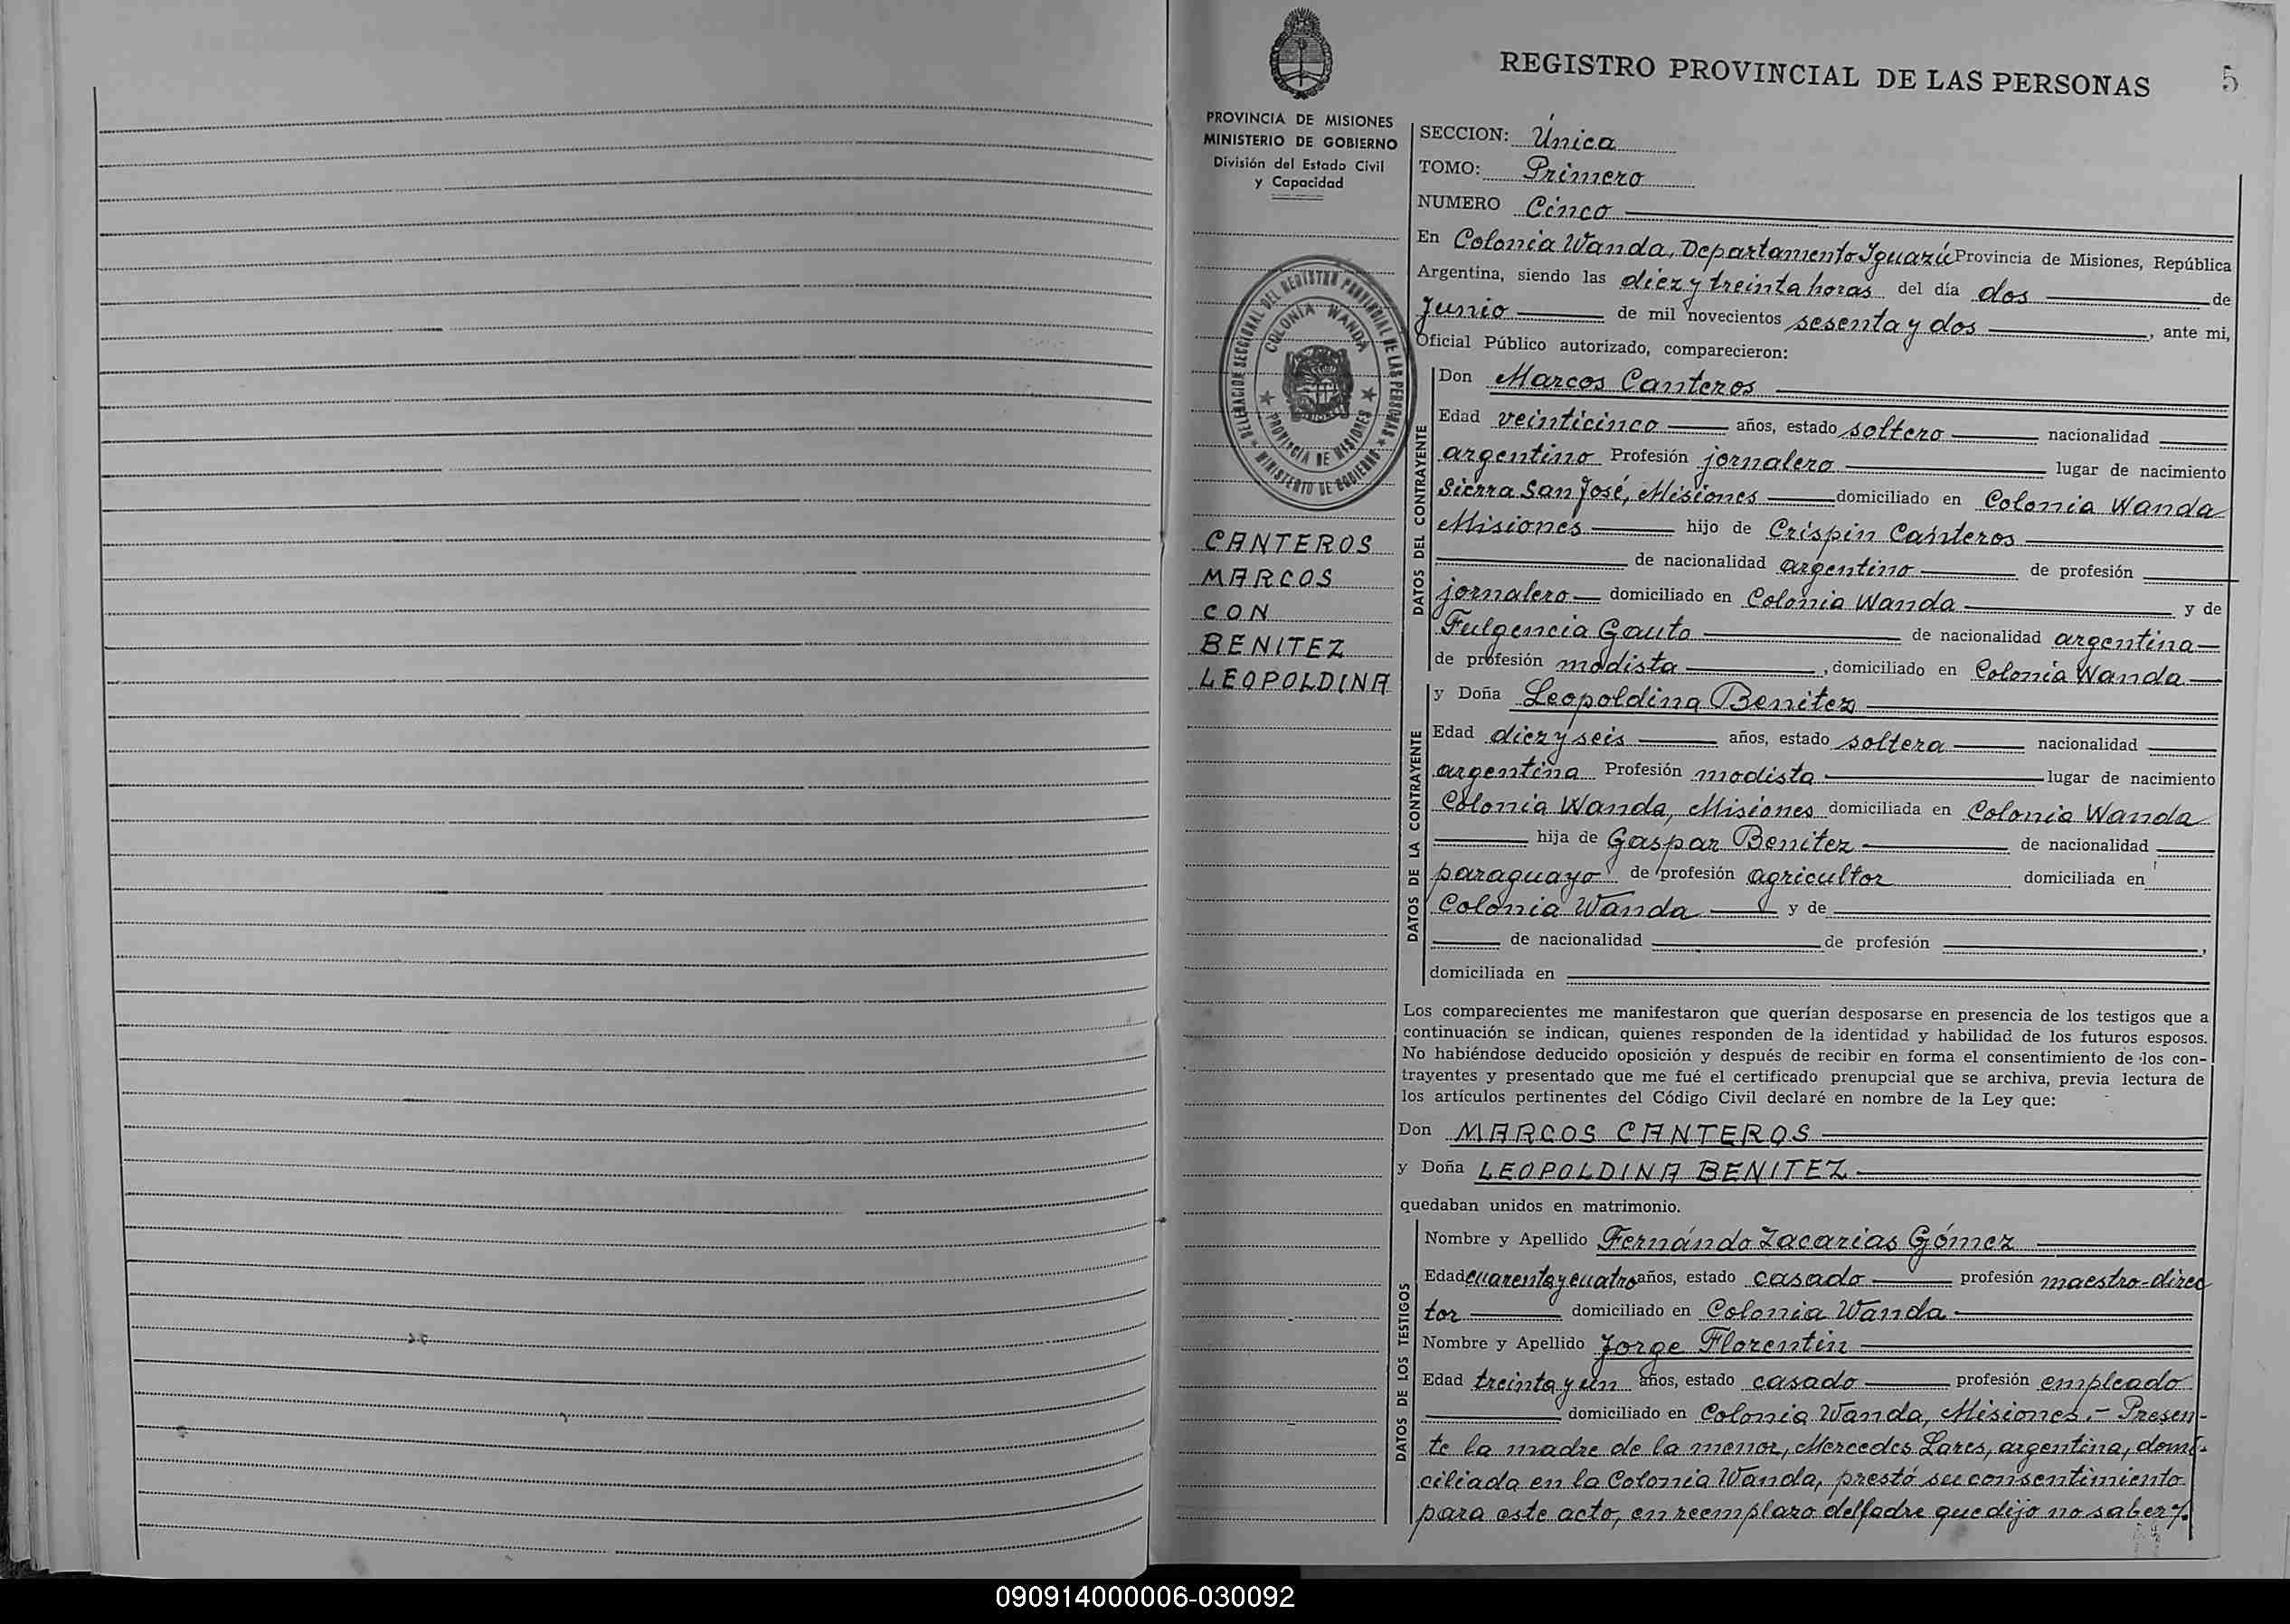 REGISTRO PROVINCIAL DE LAS PERSONAS
5
PROVINCIA DE MISIONES
MINISTERIO DE GOBIERNO
División del Estado Civil
y Capacidad
DELEGACION SECCIONAL DEL REGISTRO PROVINCIAL DE LAS PERSONAS
COLONIA WANDA
PROVINCIA DE MISIONES
MINISTERIO DE GOBIERNO
CANTEROS
MARCOS
CON
BENITEZ
LEOPOLDINA
SECCION: Única
TOMO: Primero
NUMERO Cinco
En Colonia Wanda, Departamento Iguazú Provincia de Misiones, República
Argentina, siendo las diez y treinta horas del día dos de
Junio de mil novecientos sesenta y dos, ante mi,
Oficial Público autorizado, comparecieron:
DATOS DEL CONTRAYENTE
Don Marcos Canteros
Edad veinticinco años, estado soltero nacionalidad
argentino Profesión jornalero lugar de nacimiento
Sierra San José, Misiones domiciliado en Colonia Wanda
Misiones hijo de Críspin Canteros
de nacionalidad argentino de profesión
jornalero domiciliado en Colonia Wanda y de
Fulgencia Gauto de nacionalidad argentina
de profesión modista, domiciliado en Colonia Wanda
DATOS DE LA CONTRAYENTE
y Doña Leopoldina Benitez
Edad diez y seis años, estado soltera nacionalidad
argentina Profesión modista lugar de nacimiento
Colonia Wanda, Misiones domiciliada en Colonia Wanda
hija de Gaspar Benitez de nacionalidad
paraguayo de profesión agricultor domiciliada en
Colonia Wanda y de
de nacionalidad de profesión ,
domiciliada en
Los comparecientes me manifestaron que querían desposarse en presencia de los testigos que a
continuación se indican, quienes responden de la identidad y habilidad de los futuros esposos.
No habiéndose deducido oposición y después de recibir en forma el consentimiento de los con-
trayentes y presentado que me fué el certificado prenupcial que se archiva, previa lectura de
los artículos pertinentes del Código Civil declaré en nombre de la Ley que:
Don MARCOS CANTEROS
y Doña LEOPOLDINA BENITEZ
quedaban unidos en matrimonio.
DATOS DE LOS TESTIGOS
Nombre y Apellido Fernándo Zacarias Gómez
Edad cuarenta y cuatro años, estado casado profesión maestro-direc
tor domiciliado en Colonia Wanda
Nombre y Apellido Jorge Florentín
Edad treinta y un años, estado casado profesión empleado
domiciliado en Colonia Wanda, Misiones.- Presen-
te la madre de la menor, Mercedes Lares, argentina, domi-
ciliada en la Colonia Wanda, prestó su consentimiento
para este acto, en reemplazo del padre que dijo no saber
090914000006-030092